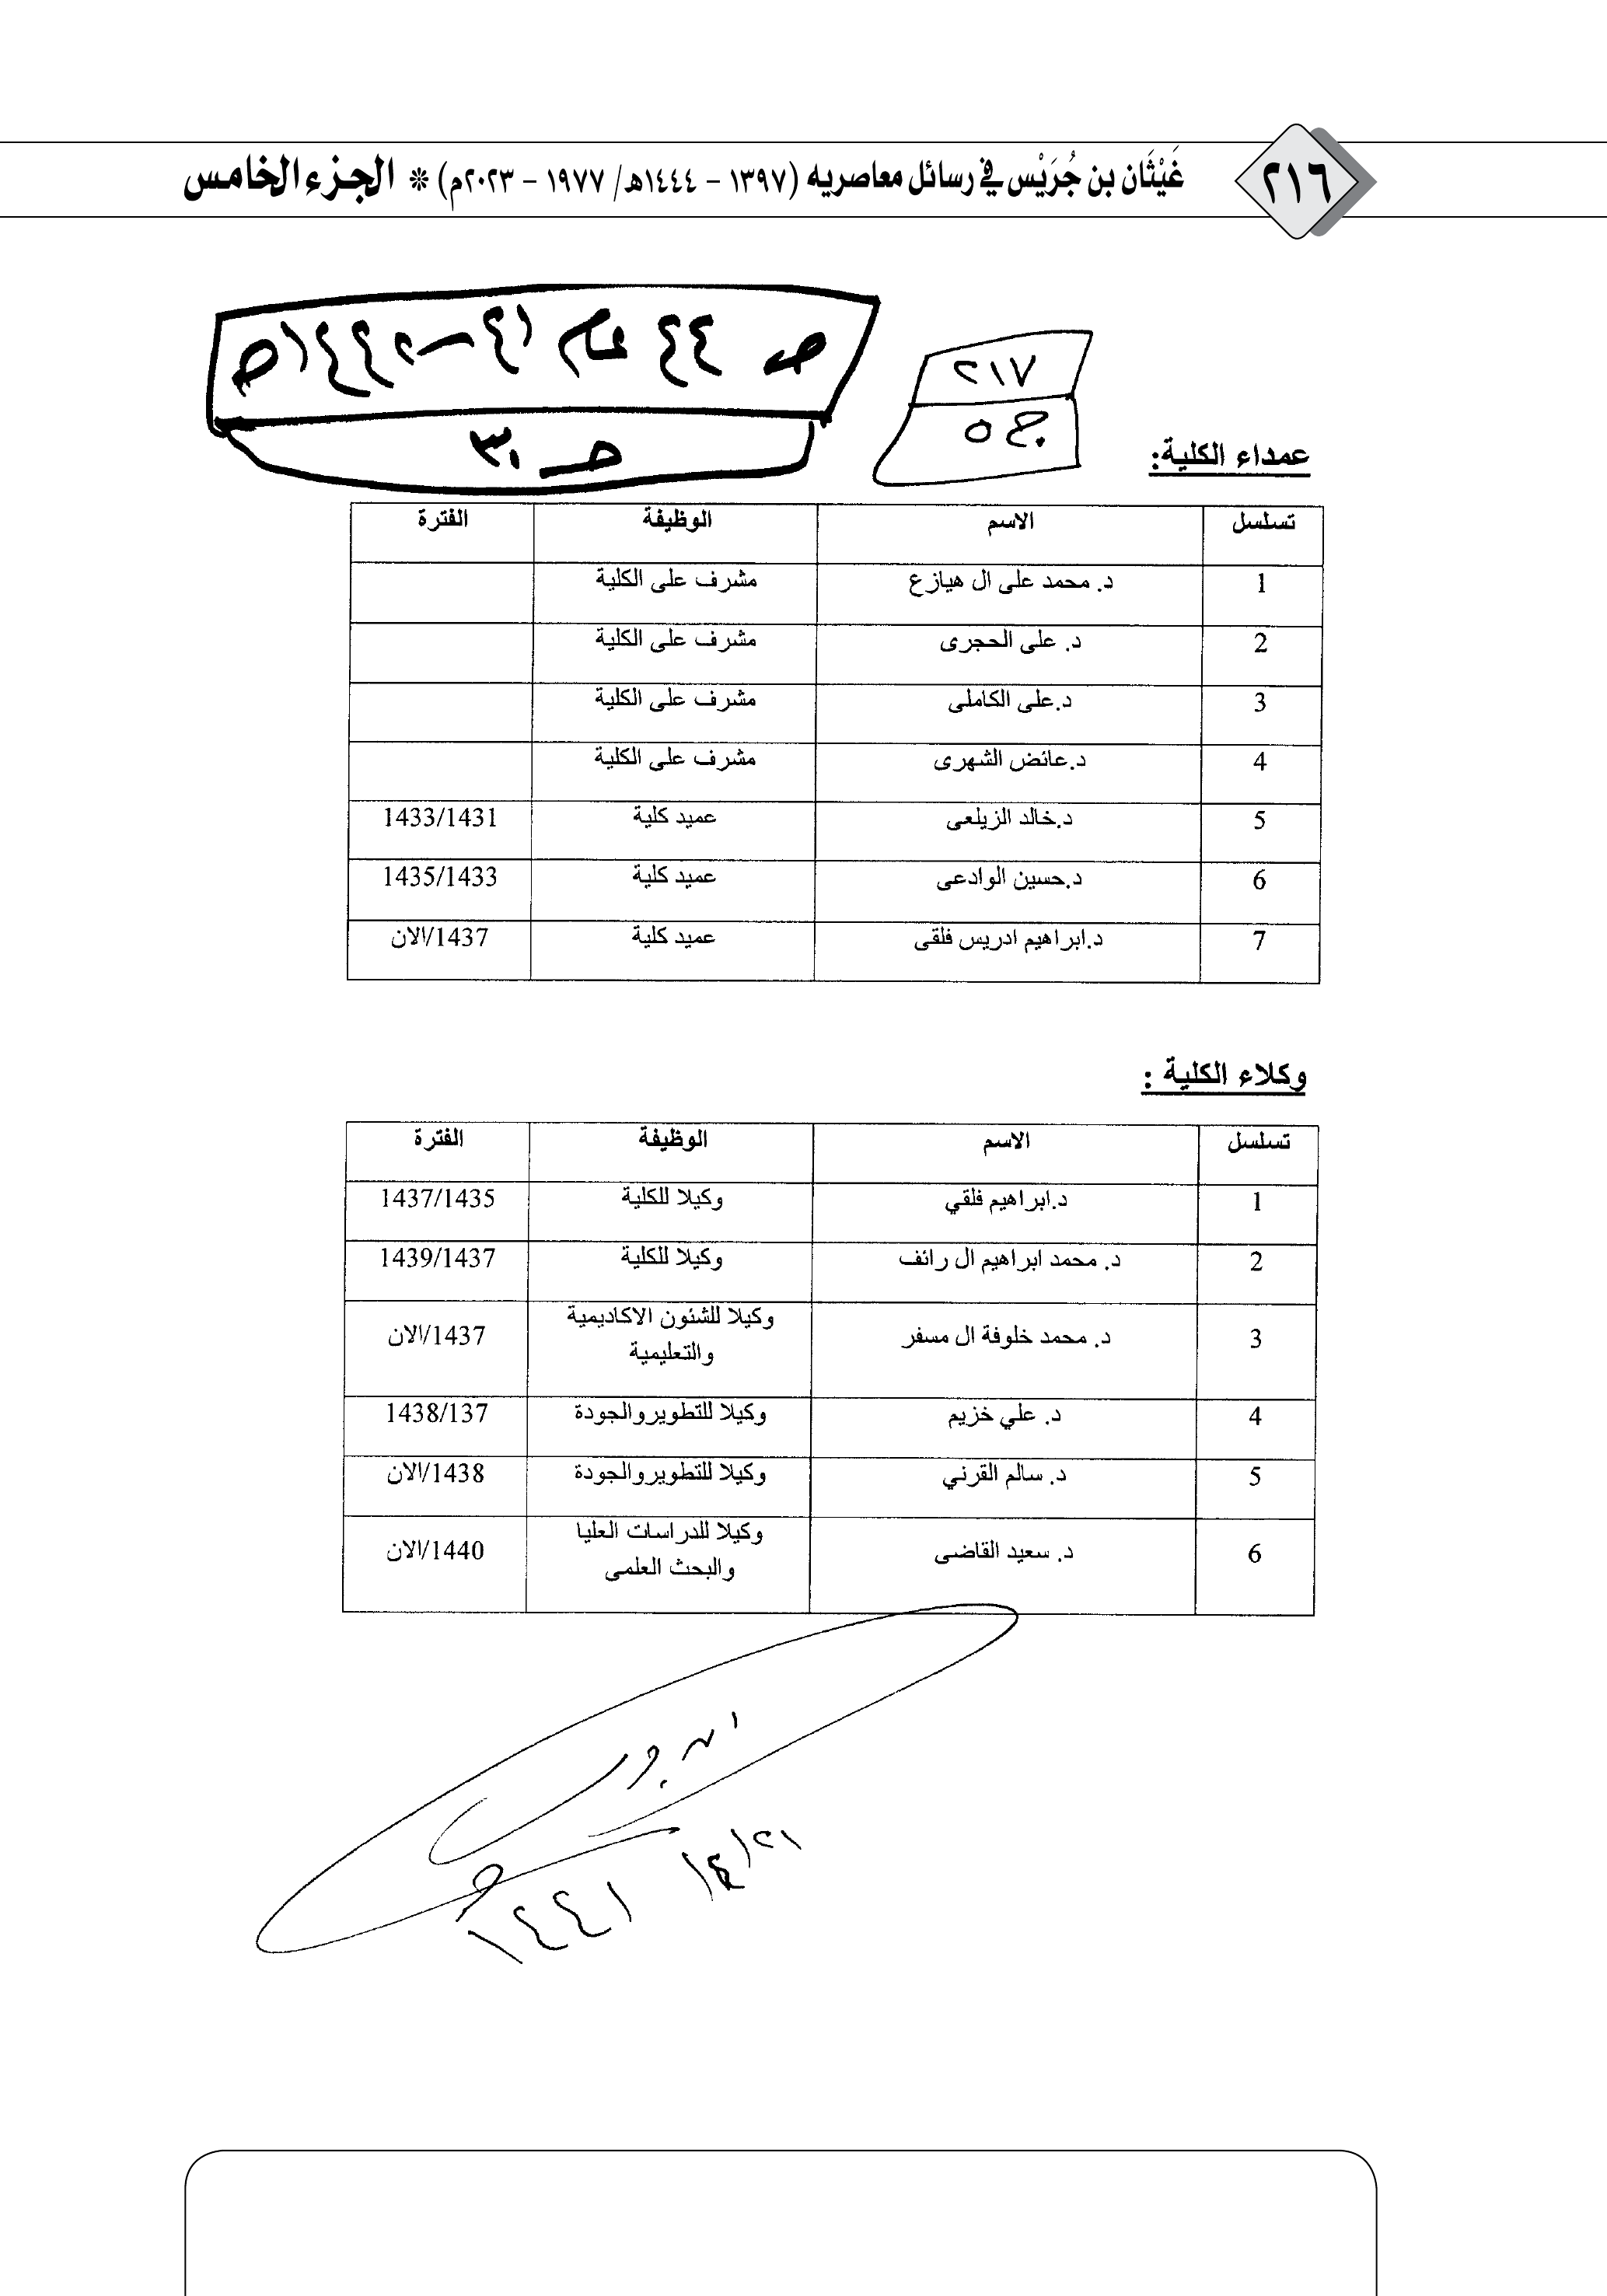 ٢١٦ غَيْثَان بن جُرَيْس في رسائل معاصريه (١٣٩٧ - ١٤٤٤هـ/ ١٩٧٧ - ٢٠٢٣م) * الجزء الخامس
صـ ٤٤ عام ٤١ - ١٤٤٢هـ
٢١٧
ج ٥
حـ ٣٠
عمداء الكلية:
تسلسل الاسم الوظيفة الفترة
1 د. محمد على ال هيازع مشرف على الكلية
2 د. على الحجرى مشرف على الكلية
3 د.على الكاملى مشرف على الكلية
4 د.عائض الشهرى مشرف على الكلية
5 د.خالد الزيلعى عميد كلية 1433/1431
6 د.حسين الوادعى عميد كلية 1435/1433
7 د.ابراهيم ادريس فلقى عميد كلية 1437/الان
وكلاء الكلية :
تسلسل الاسم الوظيفة الفترة
1 د.ابراهيم فلقي وكيلا للكلية 1437/1435
2 د. محمد ابراهيم ال رائف وكيلا للكلية 1439/1437
3 د. محمد خلوفة ال مسفر وكيلا للشئون الاكاديمية والتعليمية 1437/الان
4 د. علي خزيم وكيلا للتطويروالجودة 1438/137
5 د. سالم القرني وكيلا للتطويروالجودة 1438/الان
6 د. سعيد القاضى وكيلا للدراسات العليا والبحث العلمى 1440/الان
١٤٤١هـ